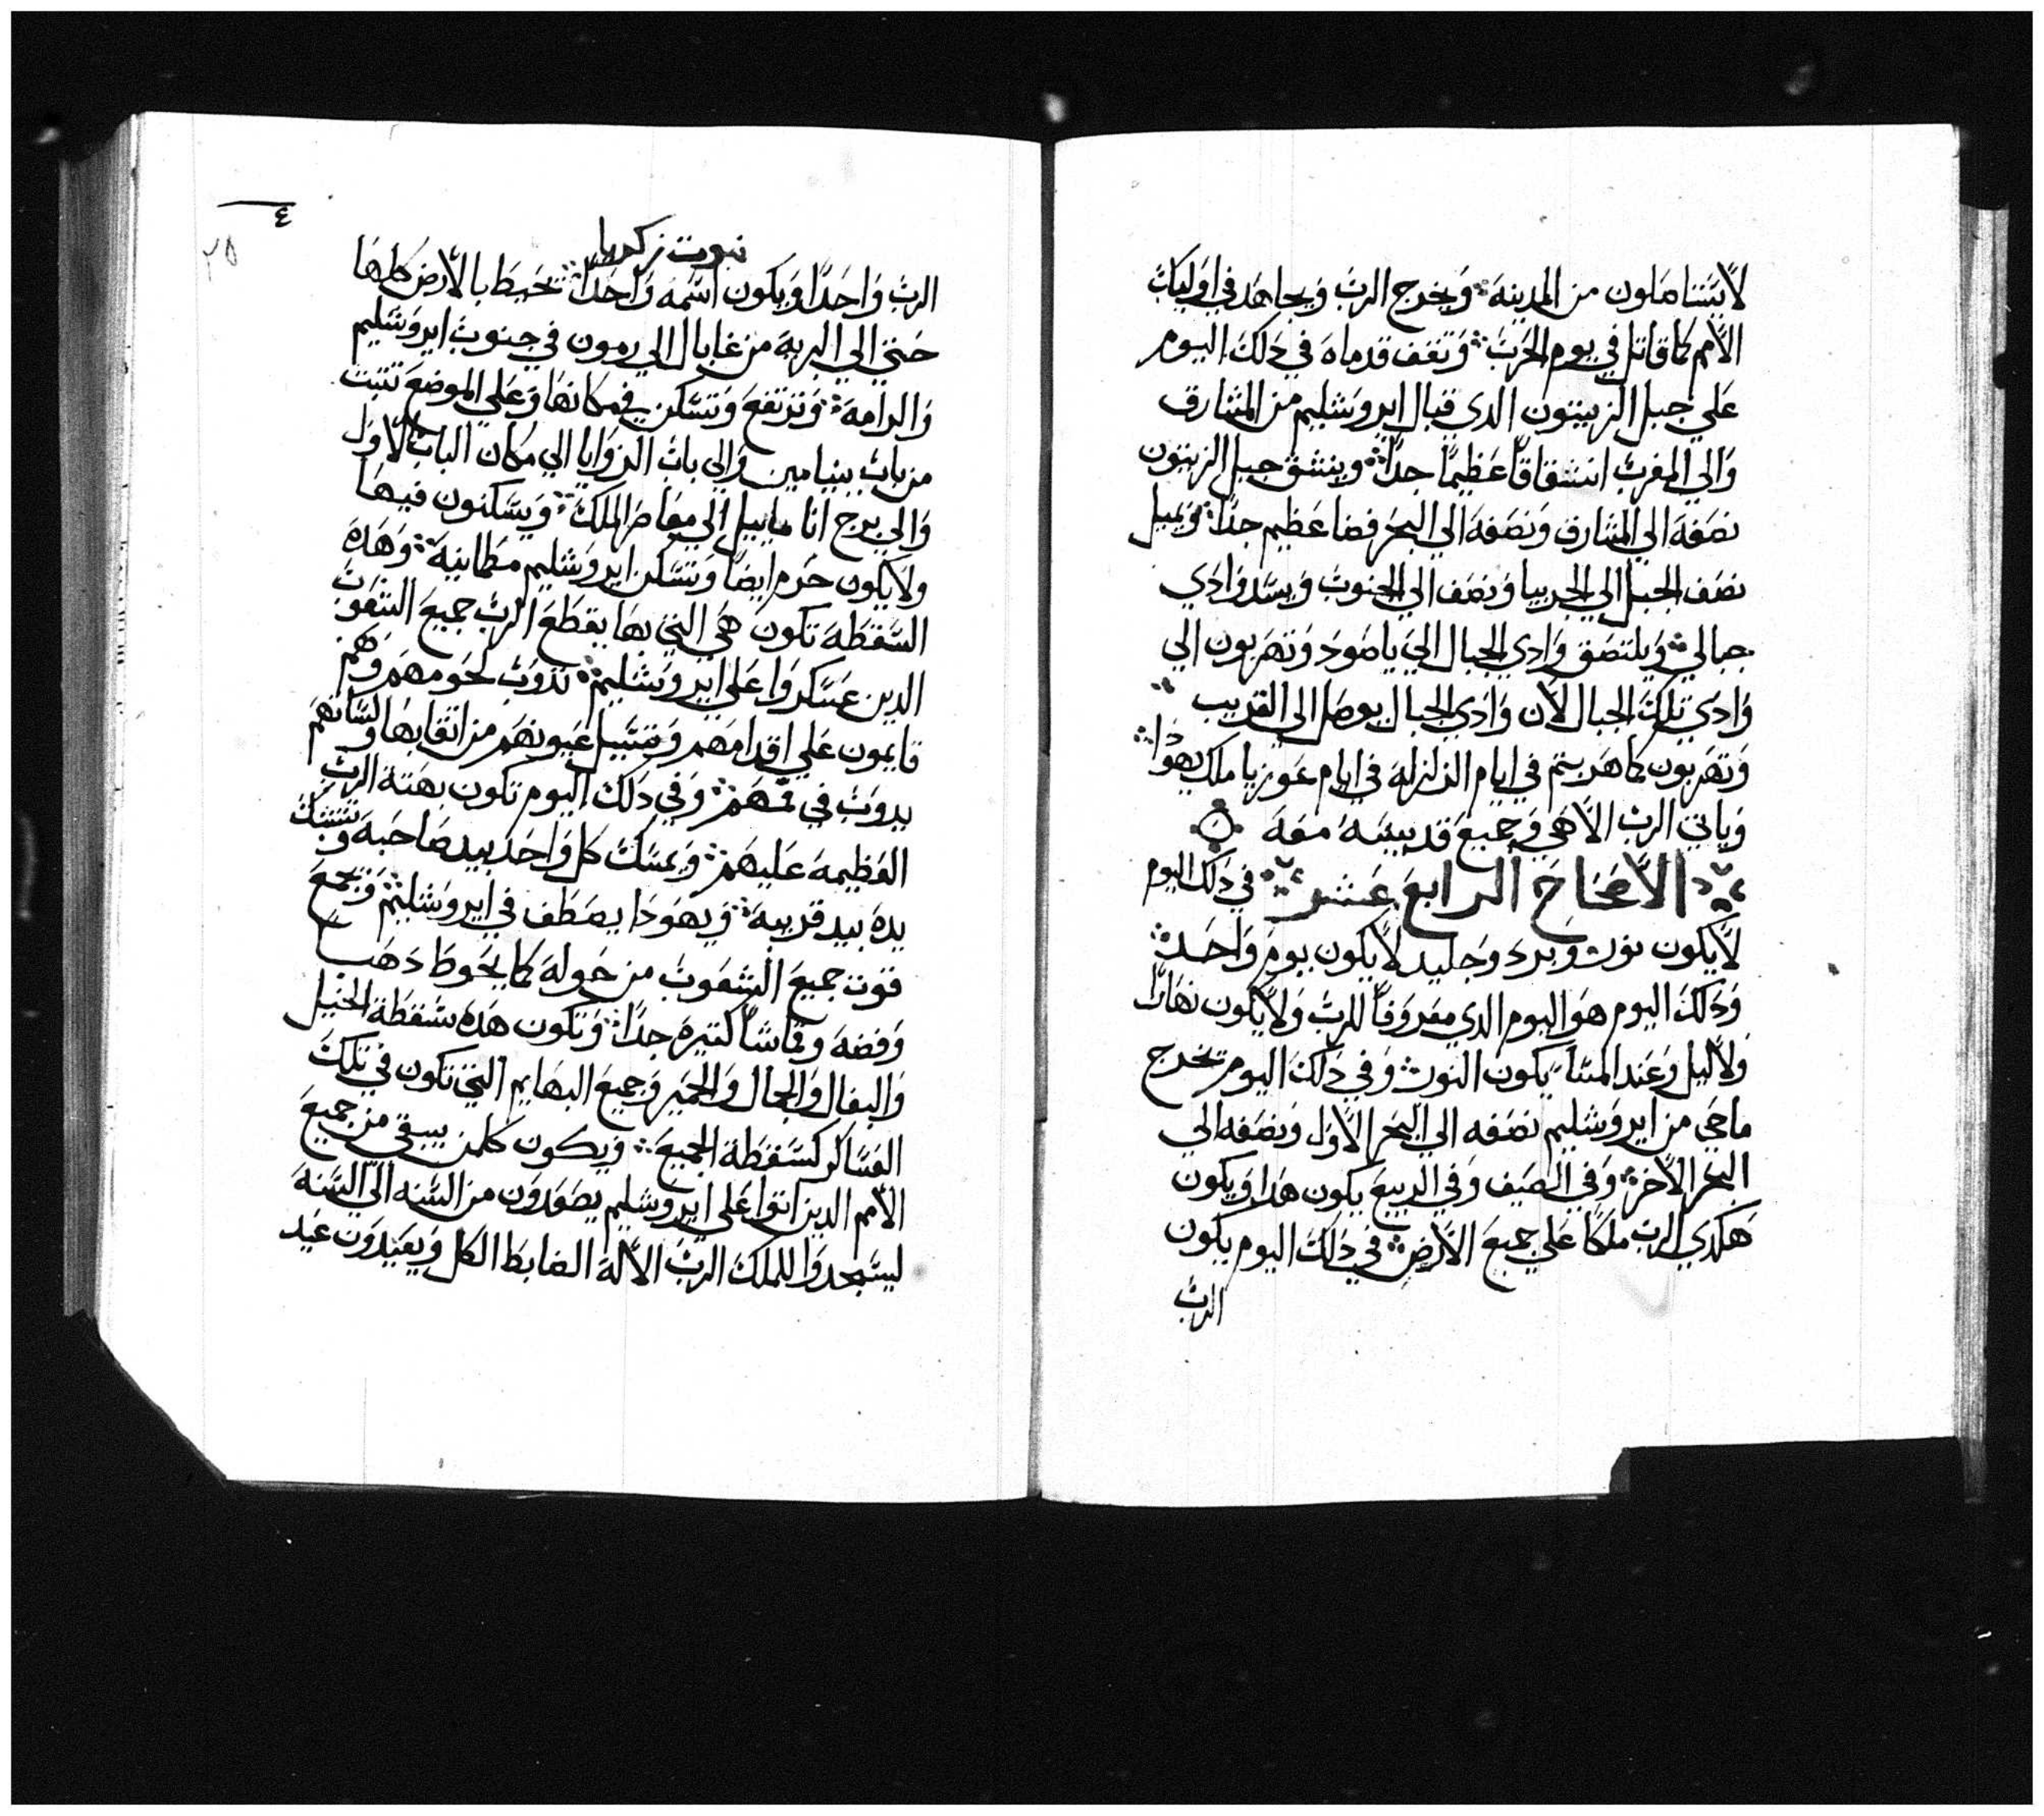 لا يتساهلون من المدينه ويخرج الرب ويجاهد في اوليك
الامم كما قاتل في يوم الحرب وتقف قدماه في دلك اليوم
علي جبل الزيتون الدي قبال ايروشليم من المشارق
والي المغرب انشقاقاً عظيماً جداً وينشق جبل الزيتون
نصفه الي المشارق ونصفه الي البحر فضا عظيم جداً ويميل
نصف الجبل الي الجربيا ونصف الي الجنوب ويسد وادي
جبالي ويلتصق وادي الجبال الي ياصود وتهربون الي
وادي تلك الجبال لان وادي الجبال يوصل الي القريب
وتهربون كما هربتم في ايام الزلزله في ايام عوزيا ملك يهودا
وياتي الرب الاهي وجميع قديسيه معه
الاصحاح الرابع عشر في دلك اليوم
لا يكون نور وبرد وجليد لا يكون يوم واحد
ودلك اليوم هو اليوم الدي معروفاً للرب ولا يكون نهاراً
ولا ليل وعند المسا يكون النور وفي دلك اليوم تخرج
ماحي من ايروشليم نصفه الي البحر الاول ونصفه الي
البحر الاخر وفي الصيف وفي الربيع يكون هدا ويكون
هكدي الرب ملكاً علي جميع الارض في دلك اليوم يكون
الرب
نبوت زكريا
٤
٢٥
الرب واحداً ويكون اسمه واحداً تحيط بالارض كلها
حتي الي البريه من غابال الي رمون في جنوب ايروشليم
والرامه وترتفع وتسكن في مكانها وعلي الموضع تتبت
من باب بنيامين والي باب الزوايا الي مكان الباب الاول
والي برج اناماييل الي معاصر الملك ويسكنون فيها
ولا يكون حرم ايضاً وتسكن ايروشليم مطمانيه وهده
السقطه تكون هي التي بها يقطع الرب جميع الشعوب
الدين عسكروا علي ايروشليم تدوب لحومهم وهم
قايمون علي اقدامهم وتسيل عيونهم من اتقابها ولسانهم
يدوب في فمهم وفي دلك اليوم تكون بهتة الرب
العظيمه عليهم ويمسك كل واحد بيد صاحبه وتشتبك
يده بيد قريبه ويهودا يصطف في ايروشليم وتجمع
قوت جميع الشعوب من حوله كما يحوط دهب
وفضه وقماشاً كتيره جداً وتكون هده سقطة الخيل
والبغال والجمال والحمير وجميع البهايم التي تكون في تلك
العساكر كسقطة الجميع ويكون كلمن يبقي من جميع
الامم الدين اتوا علي ايروشليم يصعدون من السنه الي السنه
ليسجدوا للملك الرب الاله الضابط الكل ويعيدون عيد